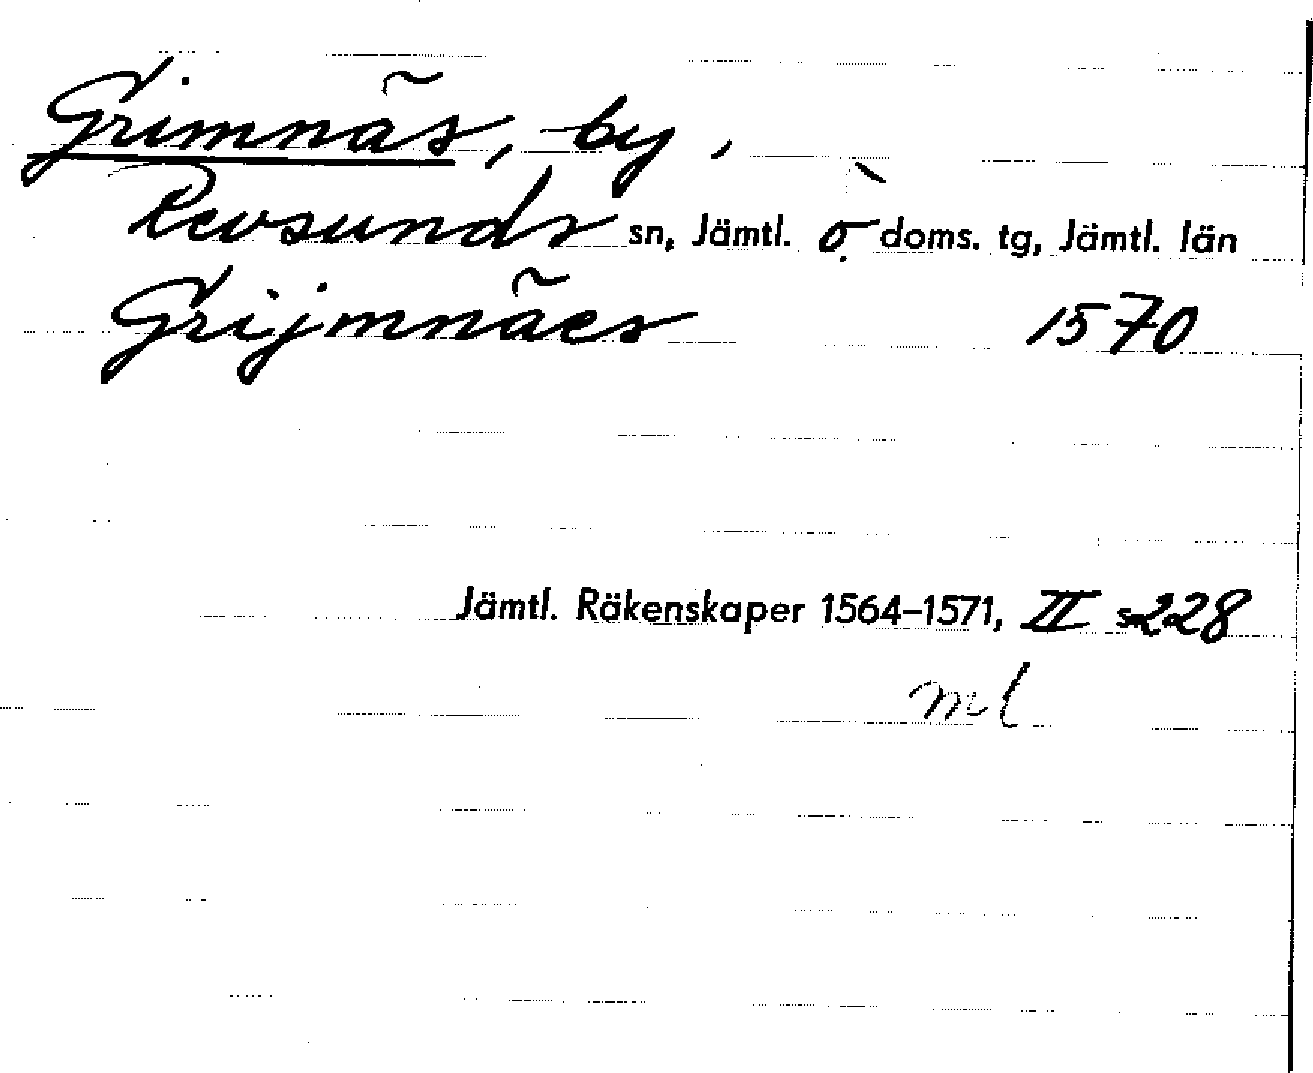 Grimnäs, by,
Revsunds sn, Jämtl. ö. doms. tg, Jämtl. län
Grijmnäes 1570
Jämtl. Räkenskaper 1564–1571, II s 228
ml